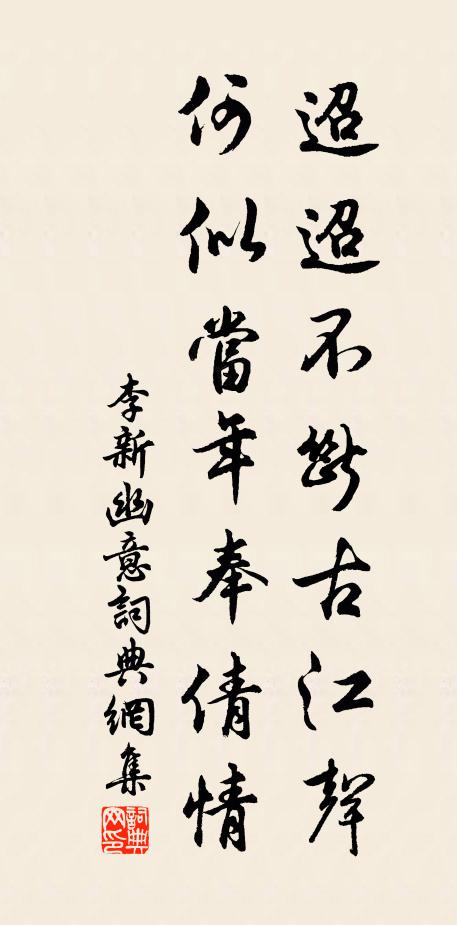 迢迢不斷古江聲
何似當年奉倩情
李新幽意詞典網集
詞典網印